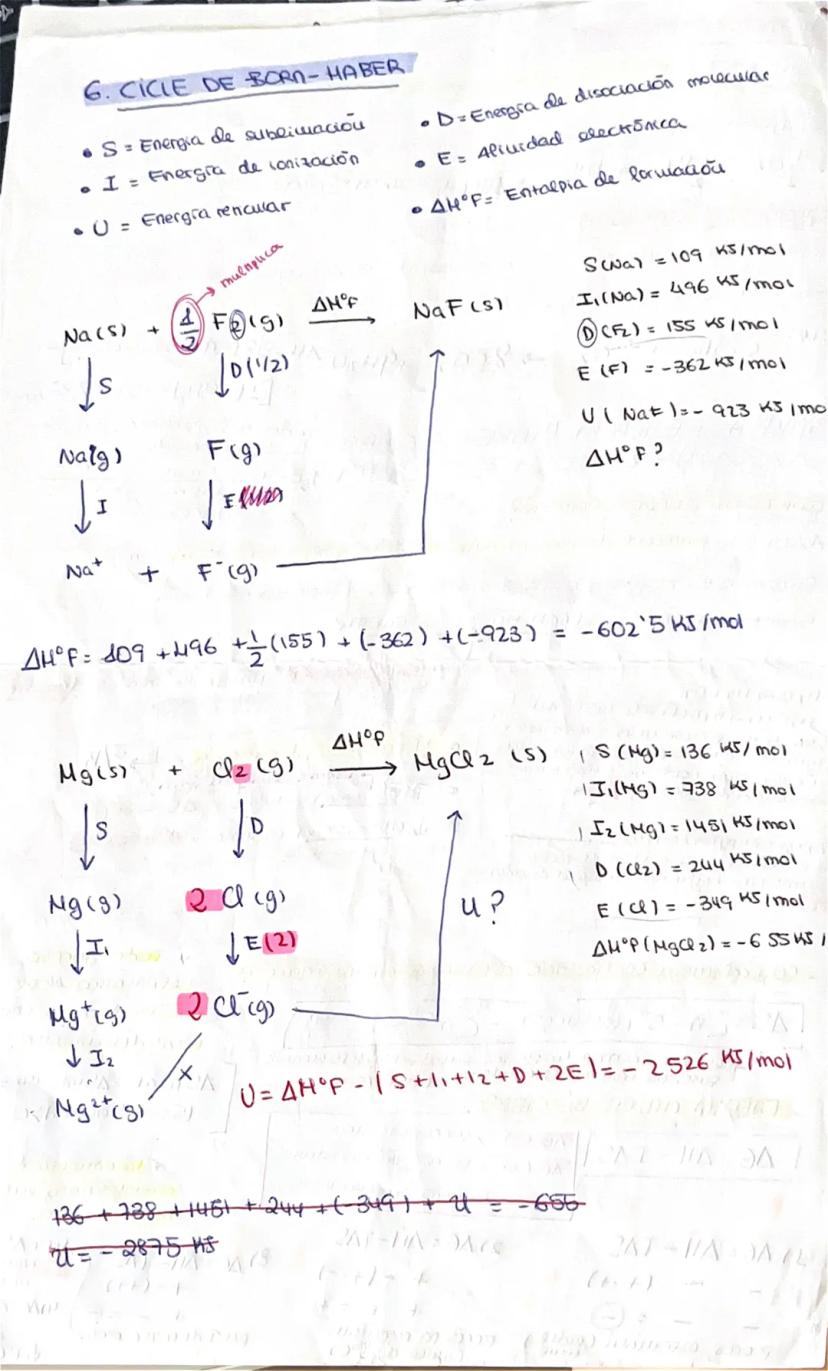 6. CICLE DE BORN-HABER
• S = Energía de sublimación
• D = Energía de disociación molecular
• I = Energía de ionización
• E = Afinidad electrónica
• U = Energía reticular
• ΔH°F = Entalpia de formación
multiplica
Na(s) + 1/2 F2(g) ΔH°F → NaF(s)
↓S ↓D(1/2)
Na(g) F(g)
↓I ↓E
Na+ + F-(g)
S(Na) = 109 KJ/mol
I1(Na) = 496 KJ/mol
D(F2) = 155 KJ/mol
E(F) = -362 KJ/mol
U(NaF) = -923 KJ/mo
ΔH°F?
ΔH°F = 109 + 496 + 1/2(155) + (-362) + (-923) = -602'5 KJ/mol
Mg(s) + Cl2(g) ΔH°F → MgCl2(s)
↓S ↓D
Mg(g) 2 Cl(g) U?
↓I1 ↓E(2)
Mg+(g) 2 Cl-(g)
↓I2 X
Mg2+(g)
S(Mg) = 136 KJ/mol
I1(Mg) = 738 KJ/mol
I2(Mg) = 1451 KJ/mol
D(Cl2) = 244 KJ/mol
E(Cl) = -349 KJ/mol
ΔH°F(MgCl2) = -655 KJ/
U = ΔH°F - (S+I1+I2+D+2E) = -2526 KJ/mol
136 + 738 + 1451 + 244 + (-349) + U = -655
U = -2875 KJ